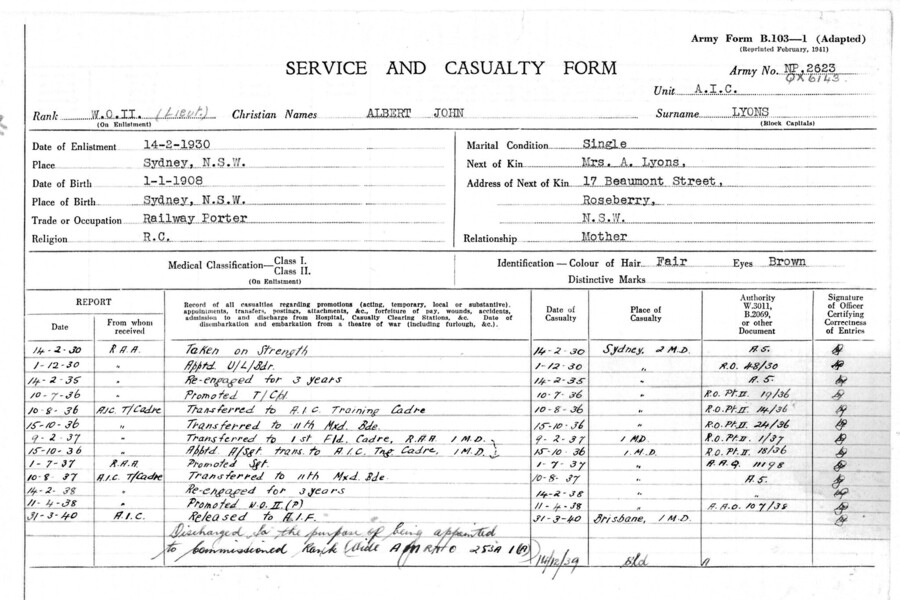 Army Form B.103—1 (Adapted)
(Reprinted February, 1941)
SERVICE AND CASUALTY FORM
Army No. NP.2623
QX6143
Unit A.I.C.
Rank W.O.II. (Lieut.) Christian Names ALBERT JOHN Surname LYONS
(On Enlistment) (Block Capitals)
Date of Enlistment 14-2-1930
Place Sydney, N.S.W.
Date of Birth 1-1-1908
Place of Birth Sydney, N.S.W.
Trade or Occupation Railway Porter
Religion R.C.
Marital Condition Single
Next of Kin Mrs. A. Lyons,
Address of Next of Kin 17 Beaumont Street,
Roseberry,
N.S.W.
Relationship Mother
Medical Classification— Class I.
Class II.
(On Enlistment)
Identification—Colour of Hair Fair Eyes Brown
Distinctive Marks
REPORT
Date
From whom received
Record of all casualties regarding promotions (acting, temporary, local or substantive),
appointments, transfers, postings, attachments, &c., forfeiture of pay, wounds, accidents,
admission to and discharge from Hospital, Casualty Clearing Stations, &c. Date of
disembarkation and embarkation from a theatre of war (including furlough, &c.).
Date of Casualty
Place of Casualty
Authority W.3011, B.2069, or other Document
Signature of Officer Certifying Correctness of Entries
14-2-30 R.A.A. Taken on Strength 14-2-30 Sydney, 2 M.D. A.5.
1-12-30 " Apptd U/L/Bdr. 1-12-30 " R.O. 48/30
14-2-35 " Re-engaged for 3 years 14-2-35 " A.5.
10-7-36 " Promoted 10-7-36 " R.O. Pt.II 19/36
10-8-36 A.I.C. T/Cadre Transferred to A.I.C. Training Cadre 10-8-36 " R.O. Pt.II. 14/36
15-10-36 " Transferred to 11th Mxd. Bde. 15-10-36 " R.O. Pt.II. 24/36
9-2-37 " Transferred to 1st Fld. Cadre, R.A.A 1 M.D. 9-2-37 1 M.D. R.O. Pt.II. 1/37
15-10-36 " Apptd A/Sgt. trans. to A.I.C. Tng Cadre, 1 M.D. 15-10-36 1.M.D. R.O. Pt.II 18/36
1-7-37 R.A.A. Promoted Sgt. 1-7-37 " A.A.Q. 11198
10-8-37 A.I.C. T/Cadre Transferred to 11th Mxd Bde 10-8-37 " A.5.
14-2-38 " Re-engaged for 3 years 14-2-38 " "
11-4-38 " Promoted W.O.II (P) 11-4-38 " A.A.O. 107/38
31-3-40 A.I.C. Released to A.I.F. 31-3-40 Brisbane, 1 M.D.
Discharged for the purpose of being appointed
to Commissioned Rank (Vide AMR&O 253A 1(A)) 14/12/39